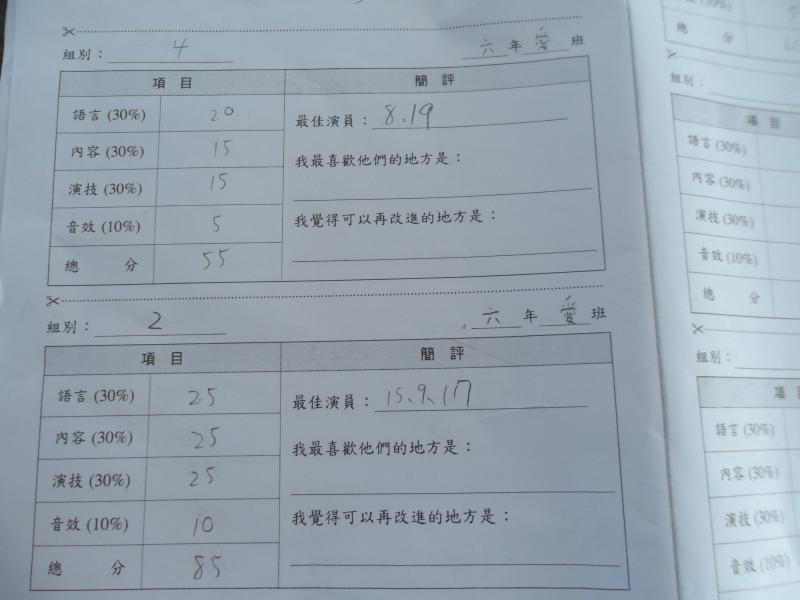 組別： 4 六 年 愛 班
項 目 簡 評
語言 (30%) 20 最佳演員： 8、19
內容 (30%) 15 我最喜歡他們的地方是：
演技 (30%) 15
音效 (10%) 5 我覺得可以再改進的地方是：
總 分 55
組別： 2 六 年 愛 班
項 目 簡 評
語言 (30%) 25 最佳演員： 15、9、17
內容 (30%) 25 我最喜歡他們的地方是：
演技 (30%) 25
音效 (10%) 10 我覺得可以再改進的地方是：
總 分 85
總 分
組別：
項 目
語言 (30%)
內容 (30%)
演技 (30%)
音效 (10%)
總 分
組別：
項
語言 (30%)
內容 (30%)
演技 (30%)
音效 (10%)